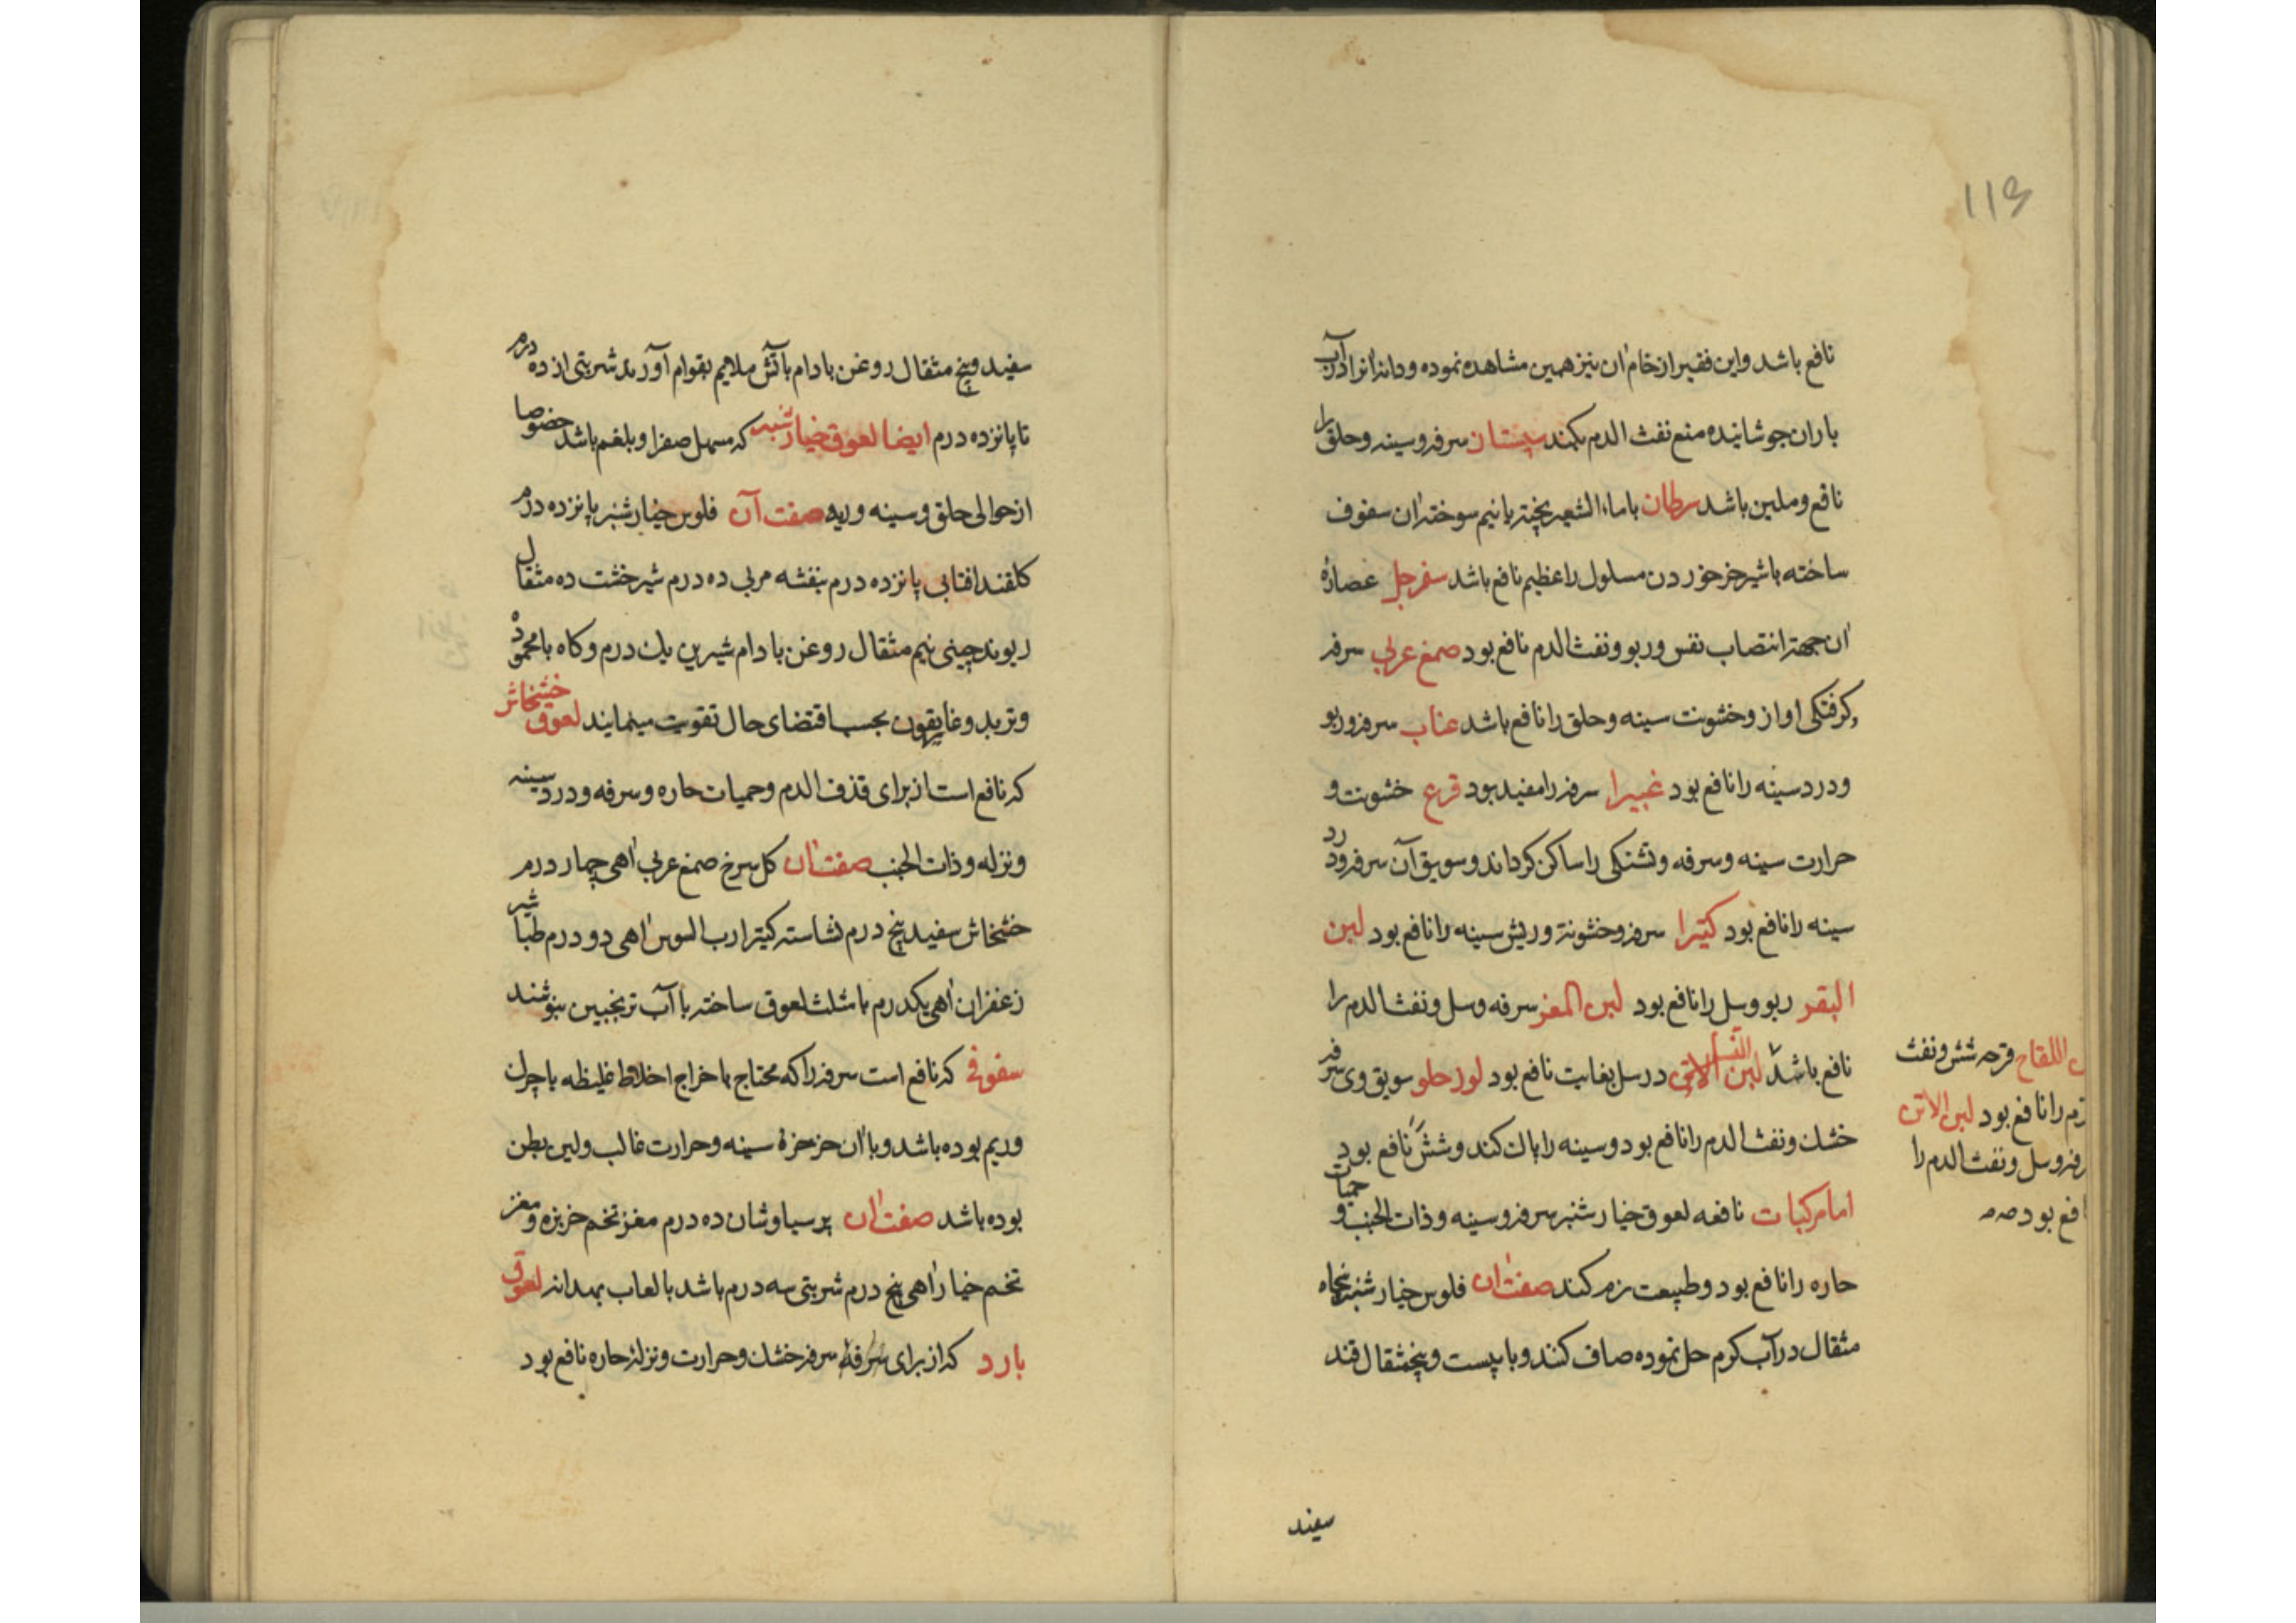 ۱۱۶
نافع باشد و این فقیر از خام ان نیز همین مشاهده نموده و دانه انرا در آب
باران جوشانیده منع نفث الدم میکند سپستان سرفه و سینه و حلق را
نافع و ملین باشد سرطان با ماء الشعیر پخته یا نیم سوخته ان سفوف
ساخته با شیر خر خوردن مسلول را عظیم نافع باشد سفرجل عصاره
ان جهة انتصاب نفس و ربو و نفث الدم نافع بود صمغ عربی سرفه
و کرفتکی اواز و خشونت سینه و حلق را نافع باشد عناب سرفه و ربو
و درد سینه را نافع بود غبیرا سرفه را مفید بود قرع خشونت و
حرارت سینه و سرفه و تشنکی را ساکن کرداند و سویق آن سرفه و درد
سینه را نافع بود کتیرا سرفه و خشونة و ریش سینه را نافع بود لبن
البقر ربو و سل را نافع بود لبن المعز سرفه و سل و نفث الدم را
نافع باشد لبن النسا در سل بغایت نافع بود لوز حلو سویق وی سرفه
خشک و نفث الدم را نافع بود و سینه را پاک کند و شش نافع بود
اما مرکبات نافعه لعوق خیار شنبر سرفه و سینه و ذات الجنب و حمیات
حاره را نافع بود و طبیعت نرم کند صفت ان فلوس خیار شنبر پنجاه
مثقال در آب کرم حل نموده صاف کنند و با بیست و پنج مثقال قند
اللقاح قرحه شش و نفث
را نافع بود لبن الاتن
و سل و نفث الدم را
بود
سفید
سفید و پنج مثقال روغن بادام باتش ملایم بقوام آورند شربتی از ده درم
تا پانزده درم ایضا لعوق خیار شنبر که مسهل صفرا و بلغم باشد خصوصا
از حوالی حلق و سینه و ریه صفت آن فلوس خیار شنبر پانزده درم
کلقند افتابی پانزده درم بنفشه مربی ده درم شیرخشت ده مثقال
ریوند چینی نیم مثقال روغن بادام شیرین یک درم و کاه بامحموده
و تربد و غاریقون بحسب اقتضای حال تقویت مینمایند لعوق خشخاش
که نافع است از برای قذف الدم و حمیات حاره و سرفه و درد سینه
و نزله و ذات الجنب صفت ان کل سرخ صمغ عربی اهی چهار درم
خشخاش سفید پنج درم نشاسته کتیرا رب السوس اهی دو درم طباشیر
زعفران اهی یکدرم با مثلث لعوق ساخته با آب ترنجبین بنوشند
سفوفی که نافع است سرفه را که محتاج باخراج اخلاط غلیظه با چرک
و ریم بوده باشد و با ان خرخرهٔ سینه و حرارت غالب و لین بطن
بوده باشد صفت ان پرسیاوشان ده درم مغز تخم خربزه و مغز
تخم خیار اهی پنج درم شربتی سه درم باشد با لعاب بهدانه لعوق
بارد که از برای سرفه سرفه خشک و حرارت و نزلهٔ حاره نافع بود